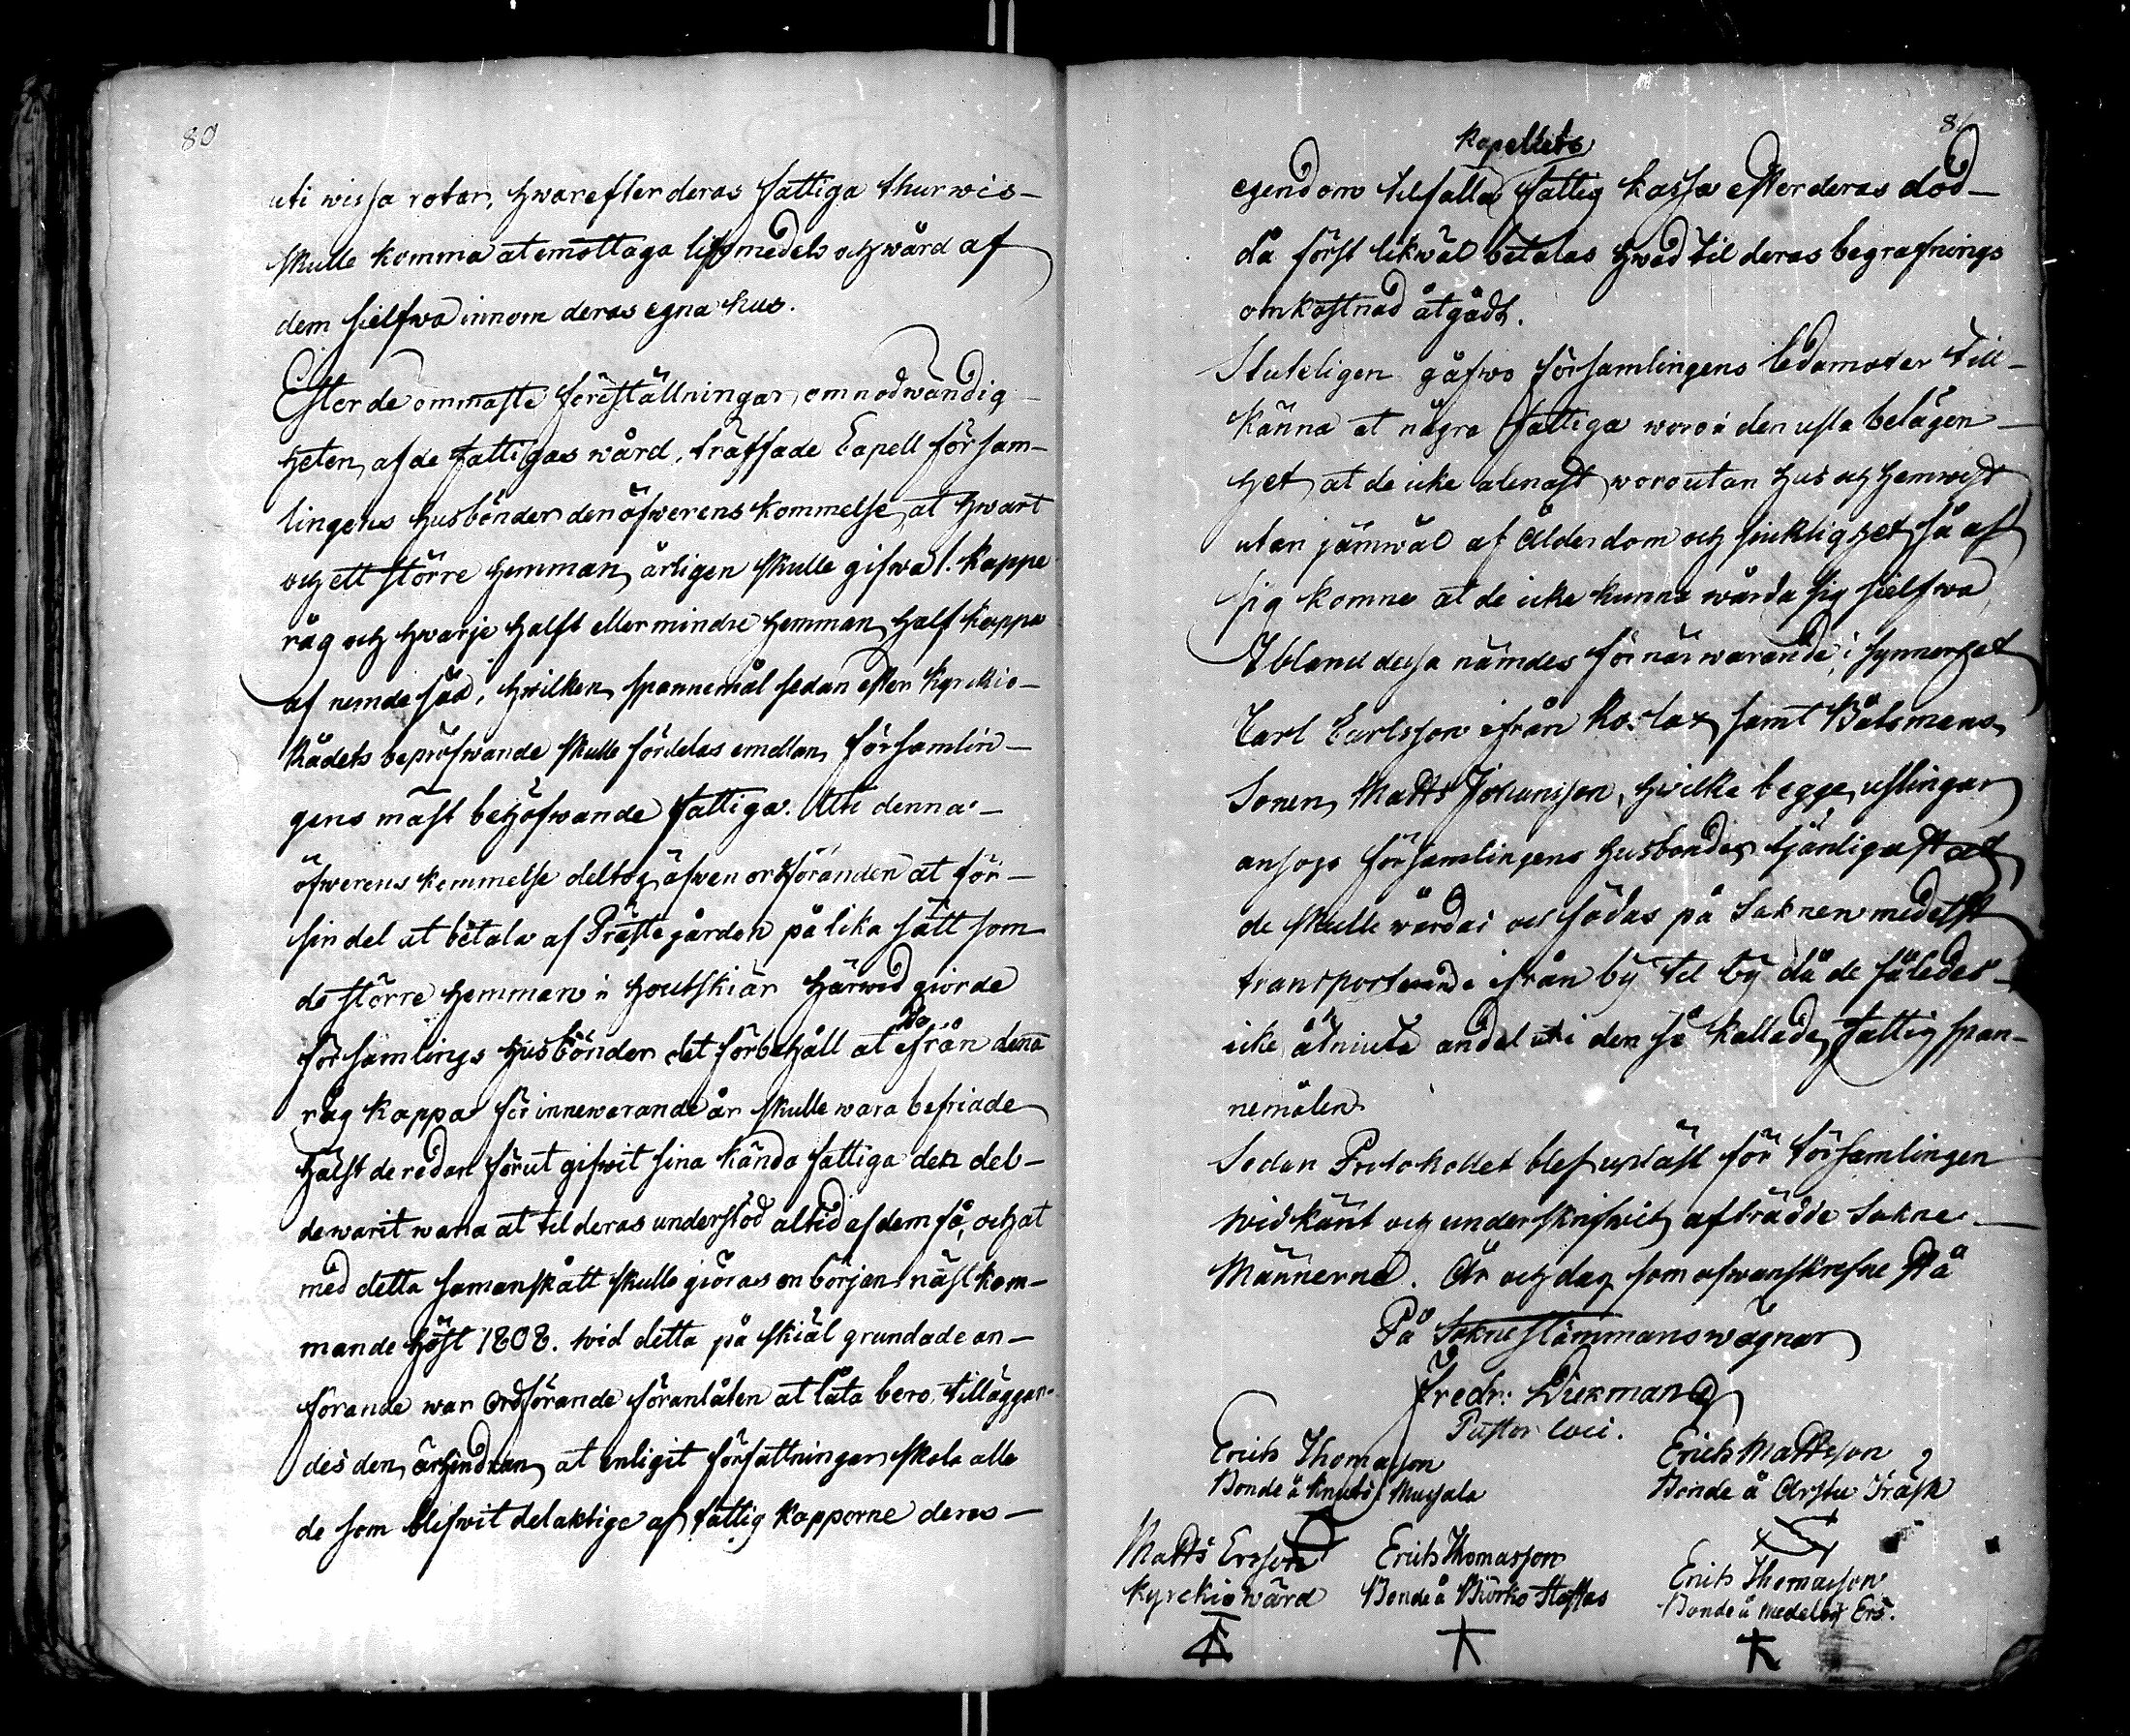 80
uti wissa rotar, hwarefter deras fattiga thurwis-
skulle komma at emottaga lifsmedels och wård af
dem sielfwa innom deras egna hus.
Efter de ömmaste föreställningar, om nödwändig-
heten af de fattigas wård, träffade Capell försam-
lingens husbönder den öfwerenskommelse, at hwart
och ett större hemman, årligen skulle gifwa 1. kappe
råg och hwarje halft eller mindre hemman half kappe
af nemde säd, hwilken spannemål sedan efter kyrckio-
Rådets bepröfwande skulle fördelas emellan församlin-
gens mäst behöfwande fattiga. Uti denna-
öfwerens kommelse deltog äfwen ordföranden at för-
sin del at betala af Prästegården på lika sätt som
de större hemman i Houtskiär Härwid giorde
församlings husbönder det förbehåll at de ifrån denna
råg kappa för innewarande år skulle wara befriade
hälst de redan förut gifwit sina kända fattiga den del-
de warit wana at til deras understöd altid af dem få, och at
med detta samanskått skulle giöras en början nästkom-
mande höst 1808. wid detta på skiäl grundade an-
förande war Ordförande föranlåten at låta bero, tilläggan-
des den ärhindran, at enligit författningar skola alle
de som blifwit delaktige af fattig kapporne deras-
81
kapellets
egendom tilfalla fattig kassa efter deras död-
då först likwäl betalas hwad til deras begrafnings
omkostnad åtgådt.
Sluteligen gåfwo församlingens ledamoter till-
känna at några fattiga woro i den usla belägen-
het at de icke alenast woro utan hus och hemwist
utan jämwäl af ålderdom och siuklighet så af
sig komne at de icke kunna wårda sig sielfwa
Ibland dessa nämdes för närwarande, i synnerhet
Carl Carlsson ifrån Roslax samt Båtsmans
Sonen Matts Johansson, hwilka begge uslingar
ansogo församlingens husbönder tjänligast at
de skulle wårdas och födas på Saknen medelst
transporterande ifrån by til by då de således-
icke åtniuta andel uti den så kallade fattig span-
nemålen.
Sedan Protokollet blef upläst för församlingen
widkänt och underskrifwit afträdde Sakne-
Männerne. År och dag som ofwanskrefne stå
På Saknestämmans wägnar
Fredr: Dickman
Pastor loci.
Erich Thomasson
Bonde å Knuts i Mussala
Erich Mattsson
Bonde å Arstu Träsk
Matts Ersson
kyrckiowärd
Erich Thomasson
Bonde å Biörkö Staffas
Erich Thomasson
Bonde å Medelby Ers.